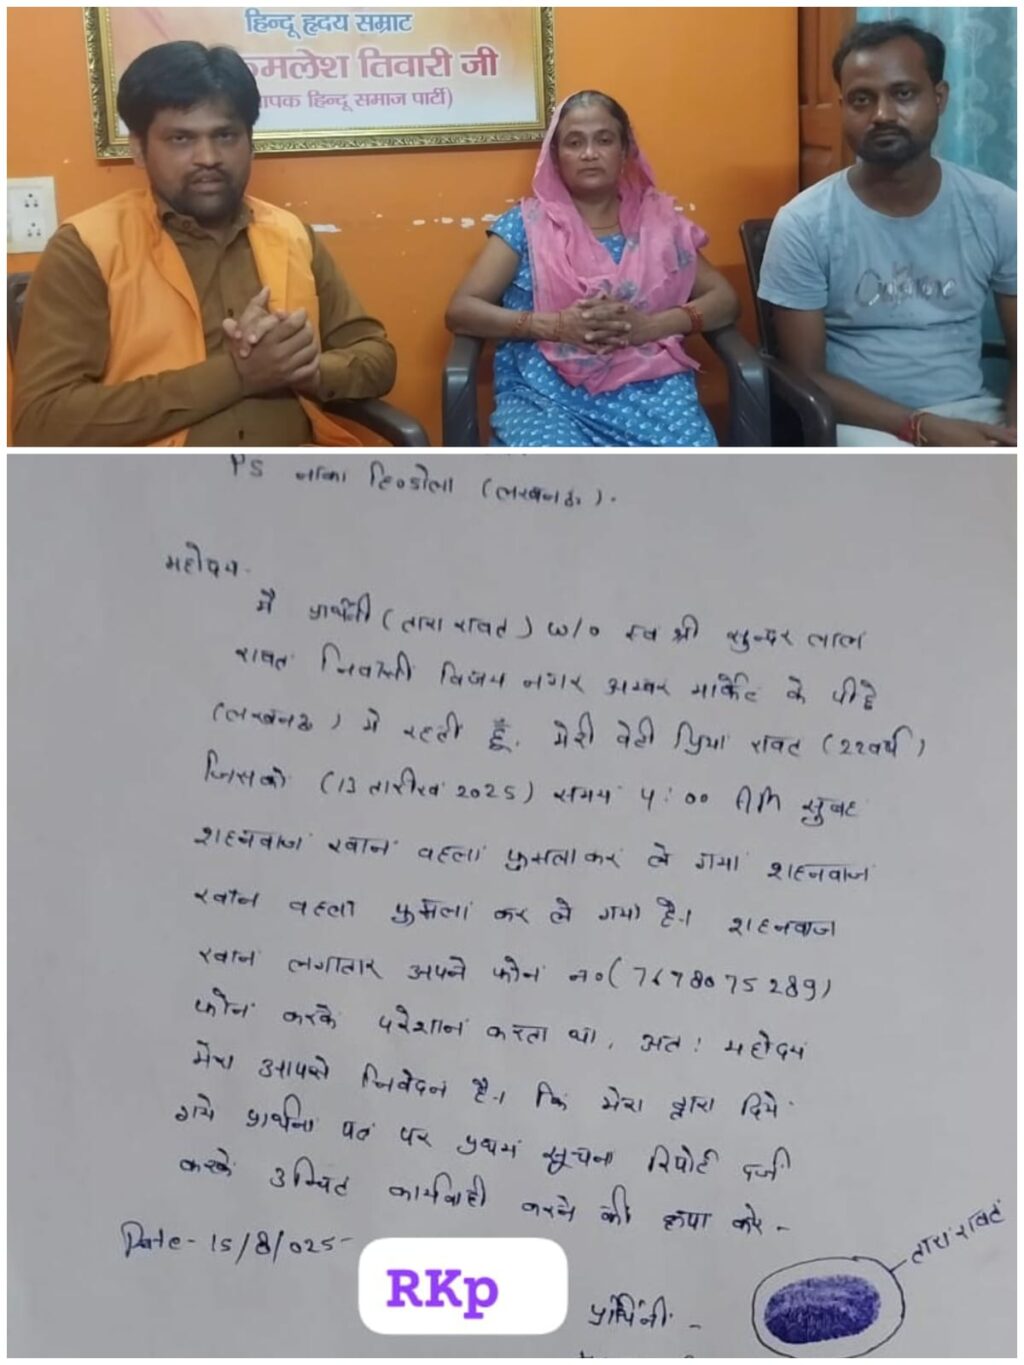 हिन्दू हृदय सम्राट
कमलेश तिवारी जी
पक हिन्दू समाज पार्टी)
PS नाका हिण्डोला (लखनऊ).
महोदय.
मै प्रार्थनी (तारा रावत) w/o स्व श्री सुन्दर लाल
रावत निवासी विजय नगर अम्बर मार्केट के पीछे
(लखनऊ) मे रहती हूँ. मेरी बेटी प्रिया रावत (22वर्ष)
जिसको (13 तारीख 2025) समय 4:00 AM सुबह
शहनवाज खान वहला फुसलाकर ले गया शहनवाज
खान वहला फुसला कर ले गया है। शहनवाज
खान लगातार अपने फोन न० (7678075289)
फोन करके परेशान करता था, अत: महोदय
मेरा आपसे निवेदन है। कि मेरा द्वारा दिये
गये प्रार्थना पत्र पर प्रथम सूचना रिपोर्ट दर्ज
करके उचित कार्यवाही करने की कृपा करे -
Date - 15/8/025-
RKp
तारा रावत
प्रार्थिनी -